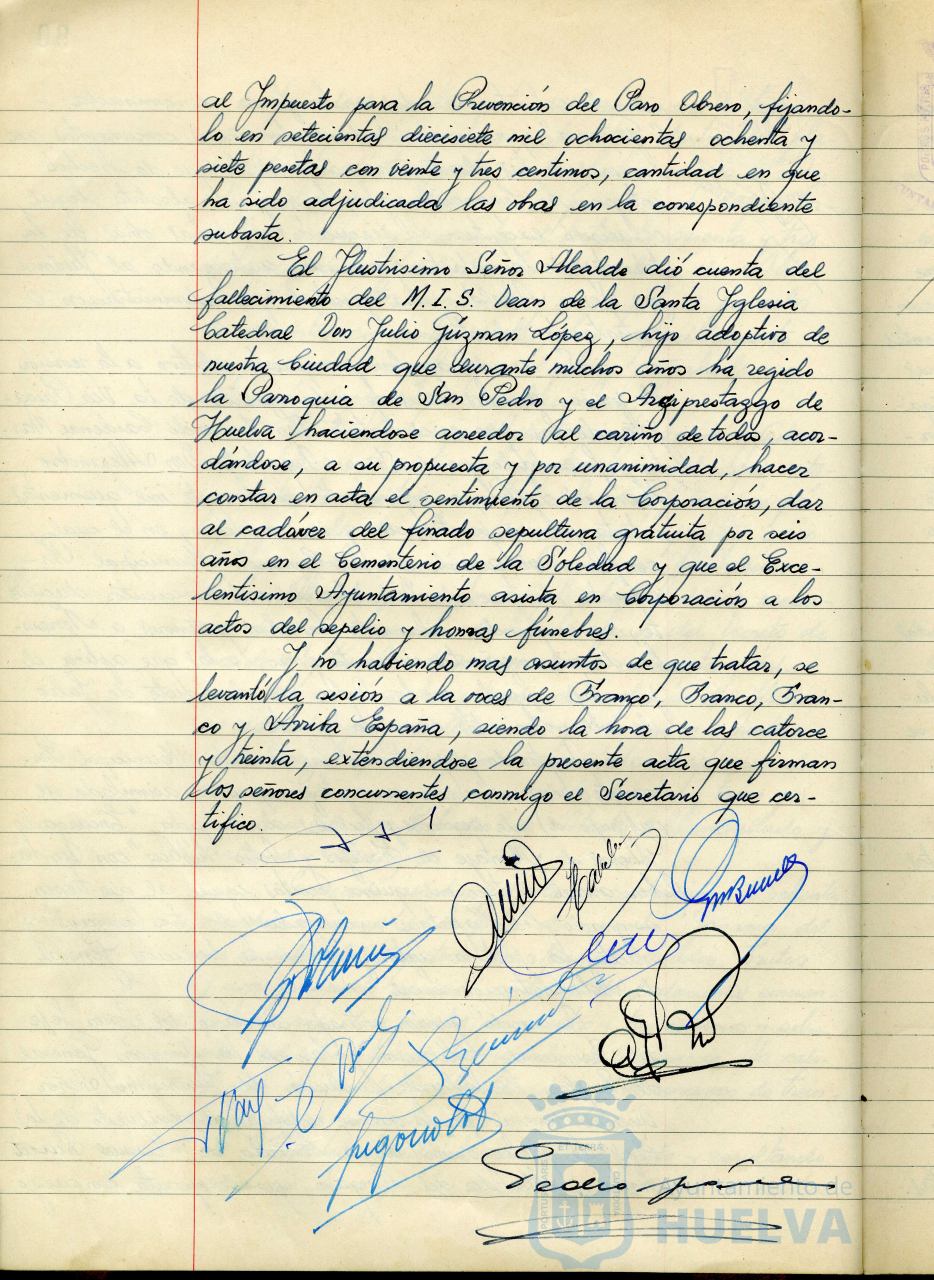 al Impuesto para la Prevención del Paro Obrero, fijando-
lo en setecientas diecisiete mil ochocientas ochenta y
siete pesetas con veinte y tres centimos, cantidad en que
ha sido adjudicada las obras en la correspondiente
subasta.
El Ilustrisimo Señor Alcalde dió cuenta del
fallecimiento del M.I.S. Dean de la Santa Iglesia
Catedral Don Julio Gúzman López, hijo adoptivo de
nuestra Ciudad que durante muchos años ha regido
la Parroquia de San Pedro y el Arciprestazgo de
Huelva haciendose acreedor al cariño de todos, acor-
dándose, a su propuesta y por unanimidad, hacer
constar en acta el sentimiento de la Corporación, dar
al cadáver del finado sepultura gratuita por seis
años en el Cementerio de la Soledad y que el Exce-
lentisimo Ayuntamiento asista en Corporación a los
actos del sepelio y honras fúnebres.
Y no habiendo mas asuntos de que tratar, se
levantó la sesión a la voces de Franco, Franco, Fran-
co y Arriba España, siendo la hora de las catorce
y treinta, extendiendose la presente acta que firman
los señores concurrentes conmigo el Secretario que cer-
tifico.
Pedro
Ayuntamiento de
HUELVA